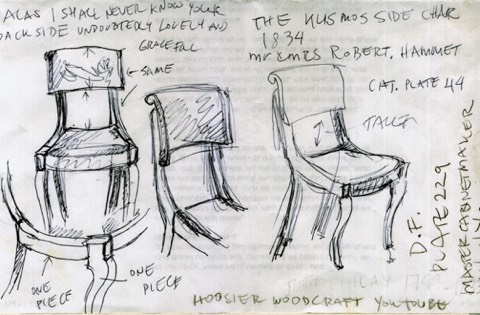 ALAS I SHALL NEVER KNOW YOUR
BACKSIDE UNDOUBTEDLY LOVELY AND
GRACEFUL
SAME
THE KLISMOS SIDE CHAIR
1834
MR & MRS ROBERT. HAMMET
CAT. PLATE 44
TALLER
D.F.
PLATE 229
MASTER CABINETMAKER
ONE
PIECE
ONE
PIECE
HOOSIER WOODCRAFT YOUTUBE